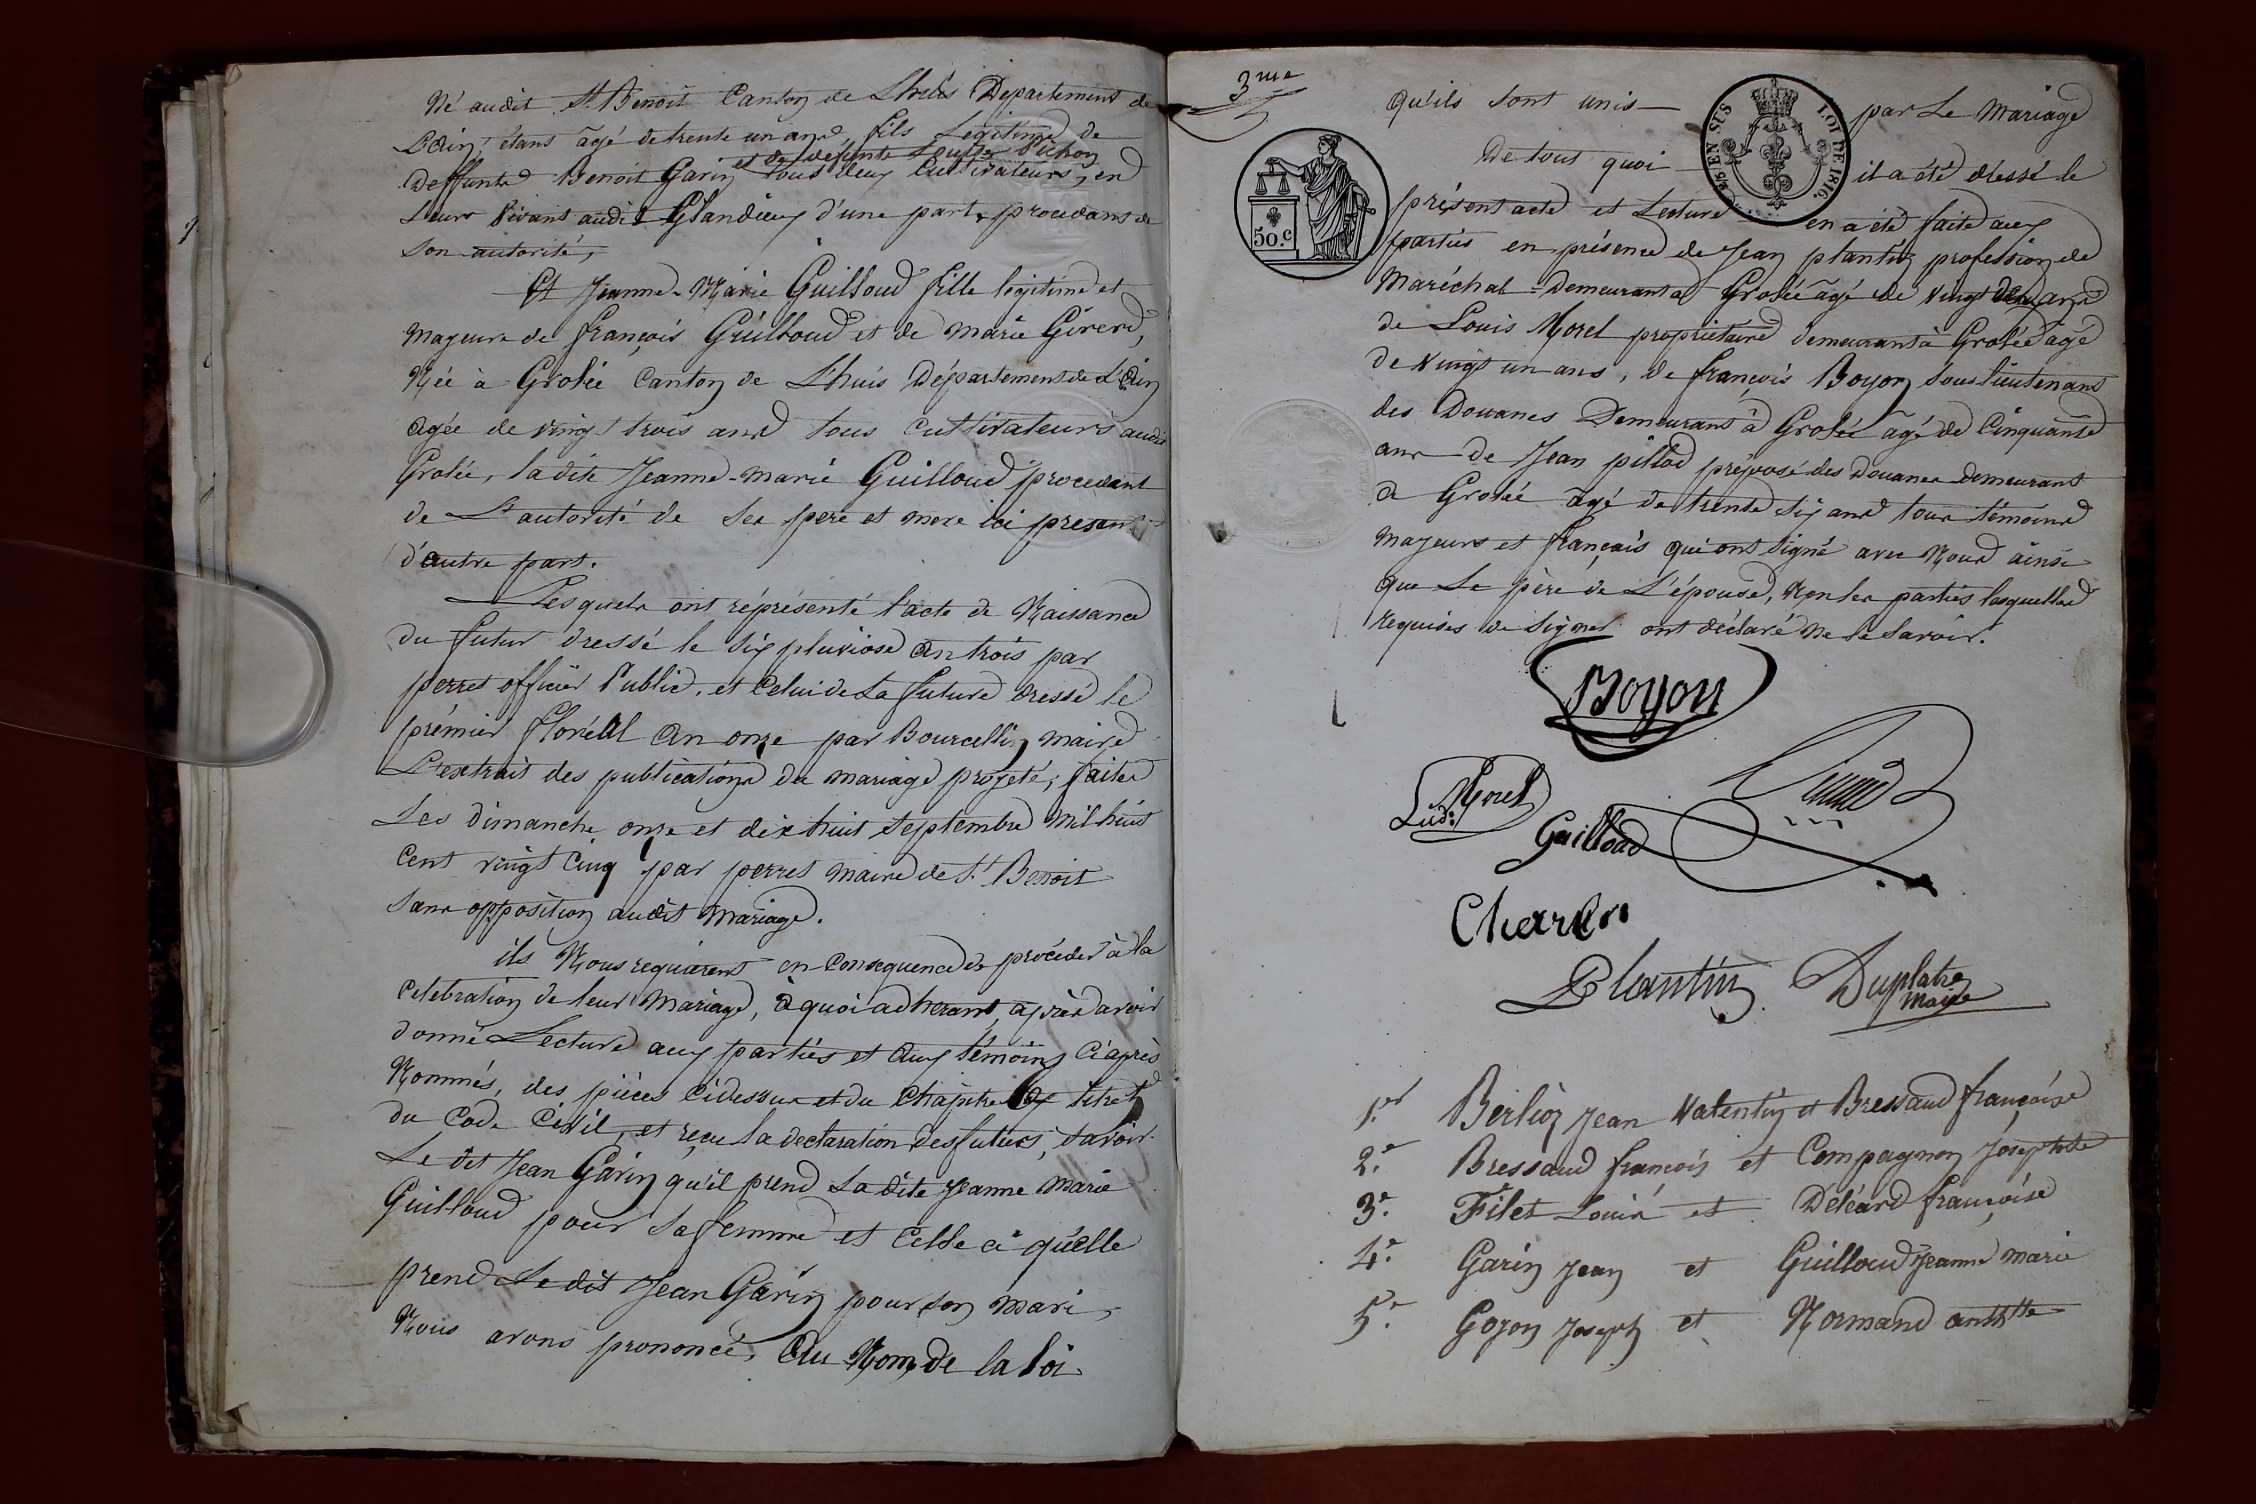 Né audit St Benoit Canton de Lhuis Departement de
L'ain, étant âgé de trente un ans, fils Légitime de
et de défunte Pichon
deffunts Benoit Garin tous deux Cultivateurs, en
Leurs Vivans audit Glandieu d'une part, procedant de
son autorité,
Et Jeanne-Marie Guilloud fille légitime et
majeure de françois Guilloud et de marie Girerd,
Née à Grolée Canton de L'huis Département de L'ain
agée de vingt trois ans tous cultivateurs audit
Grolée, la dite Jeanne-marie Guilloud procedant
de L'autorité de ses pere et mere ici presents
d'autre part.
Lesquels ont réprésenté l'acte de Naissance
du futur dressé le six pluviose an trois par
perret officier Public, et Celui de La future dressé le
prémier floréal an onze par Bourcellin maire
L'extrait des publications du mariage projeté, faites
Les dimanche onze et dix huit septembre mil huit
Cent vingt Cinq par perret maire de St Benoit
sans opposition audit mariage.
ils Nous requièrent en Consequence de procéder à la
Celebration de leur mariage, à quoi adherant, après avoir
donné Lecture aux parties et aux témoins Ci après
Nommés, des pièces Cidessus et du Chapitre 6 titre 5
du Code Civil, et reçu la declaration des futurs, savoir.
Le dit Jean Garin qu'il prend La dite Jeanne Marie
Guilloud pour sa femme et Celle ci qu'elle
prend Le dit Jean Garin pour son mari,
Nous avons prononcé, Au Nom de la loi
3me
qu'ils sont unis par Le Mariage
De tout quoi il a été dressé le
présent acte et Lecture en a été faite aux
parties en présence de Jean plantin profession de
Maréchal Demeurant à Grolée âgé de vingt deux ans
de Louis Morel propriétaire demeurant à Grolée âgé
de Vingt un ans, de françois Boyon sous lieutenant
des Douanes Demeurant à Grolée agé de Cinquante
ans de Jean pillod préposé des Douanes demeurant
à Grolée âgé de trente six ans tous témoins
majeurs et français qui ont signé avec Nous ainsi
que Le père de L'épouse, Non les parties lesquelles
requises de signer ont déclaré Ne le savoir.
50.c
EN SUS
LOI DE 1816
Boyon
Lud: Morel
Guilloud
Charles
Plantin
Duplatre
Maire
1.er Berlioz Jean Valentin et Bressaud françoise
2.e Bressaud françois et Compagnon Josephte
3.e Filet Louis et Déléard françoise
4.e Garin Jean et Guilloud Jeanne marie
5.e Goyon Joseph et Normand antte